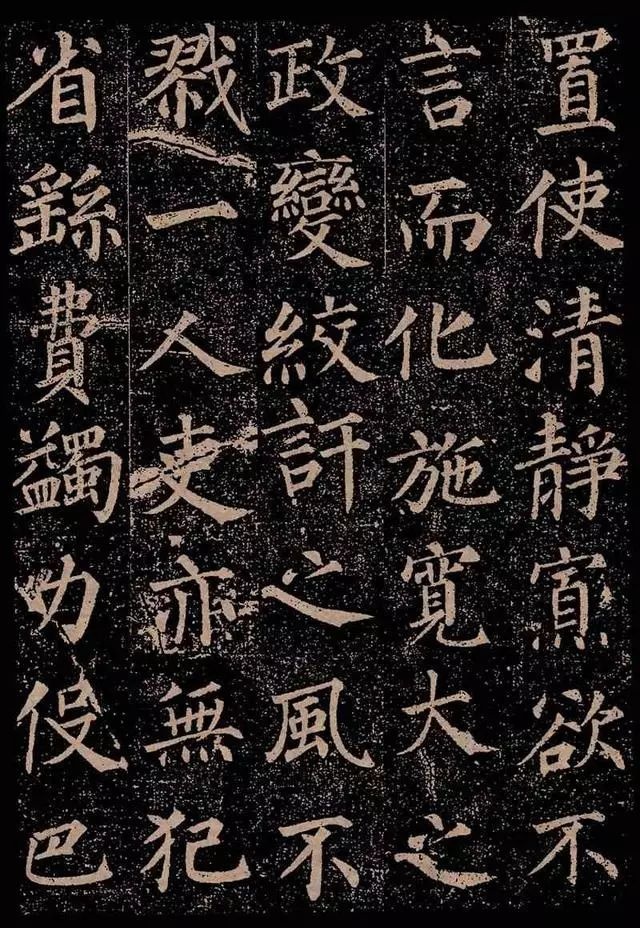 置使清靜寡欲不
言而化施寬大之
政變絞訐之風不
戮一人吏亦無犯
省繇費蠲力役巴